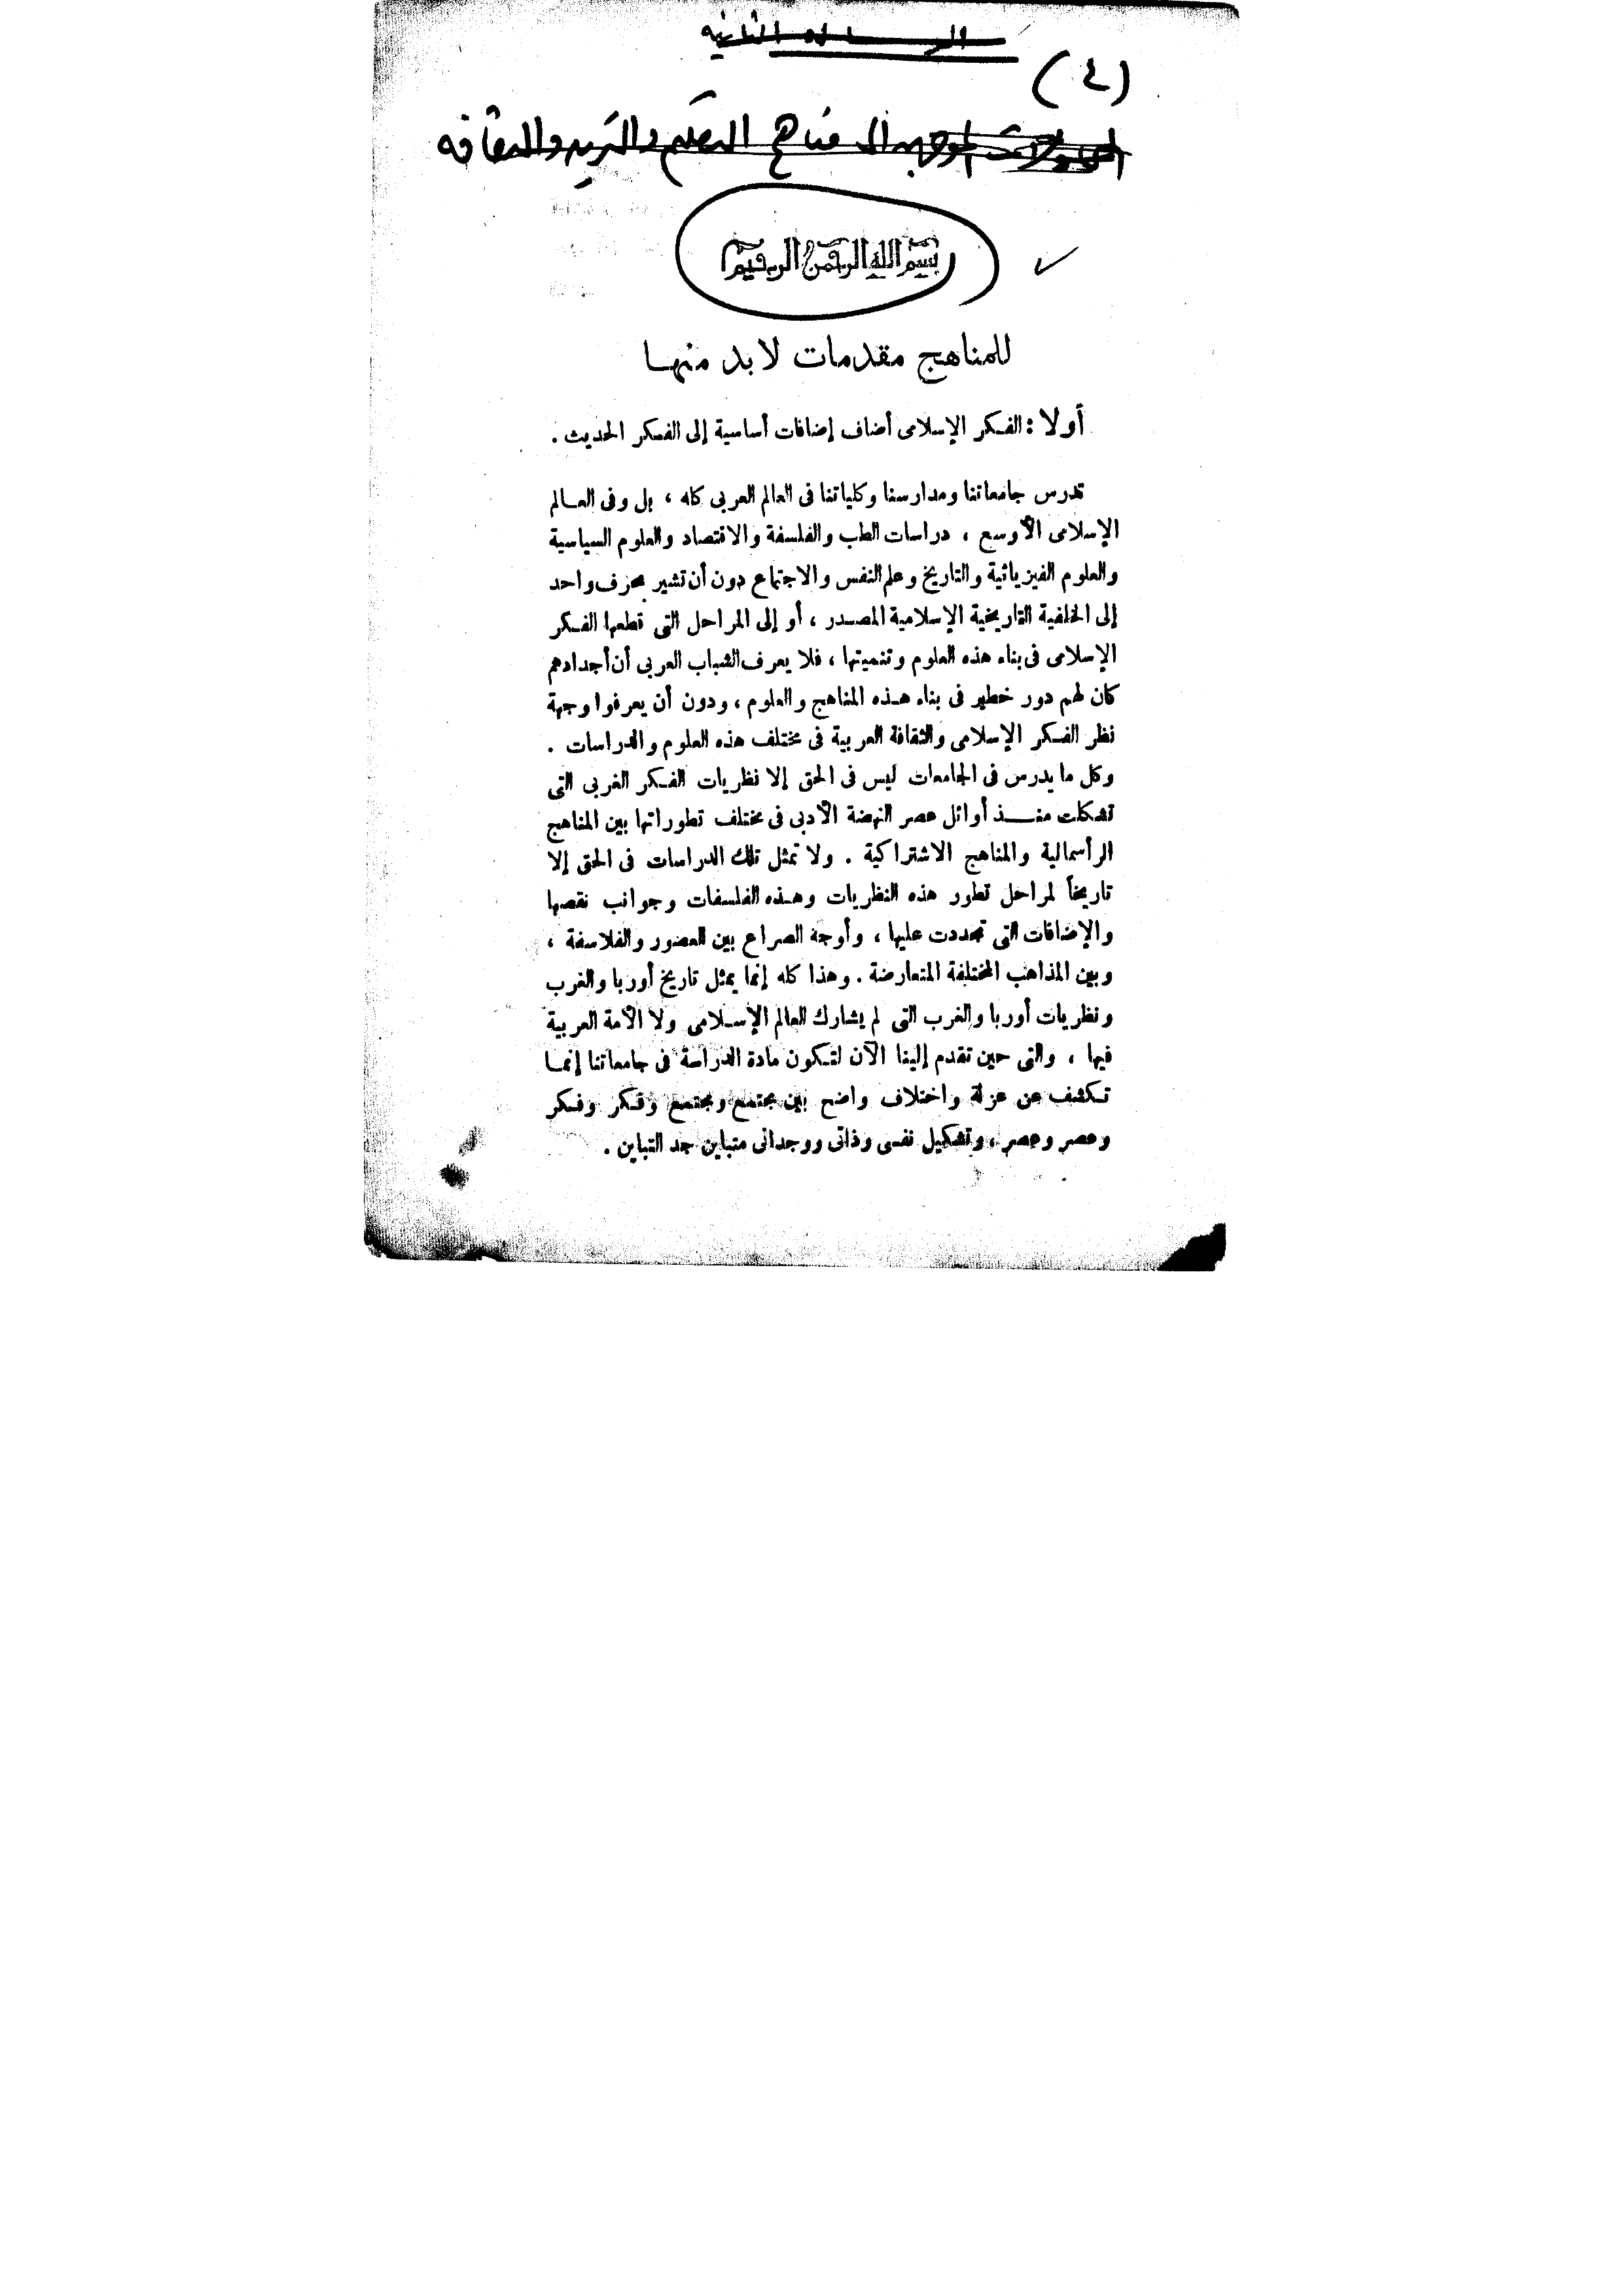 الرسالة الثانية
(٤)
الموجهة إلى مناهج التعليم والتربية والثقافة
بسم الله الرحمن الرحيم
للمناهج مقدمات لابد منها
أولا : الفكر الإسلامى أضاف إضافات أساسية إلى الفكر الحديث .
تدرس جامعاتنا ومدارسنا وكلياتنا فى العالم العربى كله ، بل وفى العالم
الإسلامى الأوسع ، دراسات الطب والفلسفة والاقتصاد والعلوم السياسية
والعلوم الفيزيائية والتاريخ وعلم النفس والاجتماع دون أن تشير بحرف واحد
إلى الخلفية التاريخية الإسلامية المصدر ، أو إلى المراحل التى قطعها الفكر
الإسلامى فى بناء هذه العلوم وتنميتها ، فلا يعرف الشباب العربى أن أجدادهم
كان لهم دور خطير فى بناء هذه المناهج والعلوم ، ودون أن يعرفوا وجهة
نظر الفكر الإسلامى والثقافة العربية فى مختلف هذه العلوم والدراسات .
وكل ما يدرس فى الجامعات ليس فى الحق إلا نظريات الفكر الغربى التى
تشكلت منذ أوائل عصر النهضة الأدبى فى مختلف تطوراتها بين المناهج
الرأسمالية والمناهج الاشتراكية . ولا تمثل تلك الدراسات فى الحق إلا
تاريخاً لمراحل تطور هذه النظريات وهذه الفلسفات وجوانب نقصها
والإضافات التى تجددت عليها ، وأوجه الصراع بين العصور والفلاسفة ،
وبين المذاهب المختلفة المتعارضة . وهذا كله إنما يمثل تاريخ أوربا والغرب
ونظريات أوربا والغرب التى لم يشارك العالم الإسلامى ولا الأمة العربية
فيها ، والتى حين تقدم إلينا الآن لتكون مادة الدراسة فى جامعاتنا إنما
تكشف عن عزلة واختلاف واضح بين مجتمع ومجتمع وفكر وفكر
وعصر وعصر ، وتشكيل نفسى وذاتى ووجدانى متباين جد التباين .